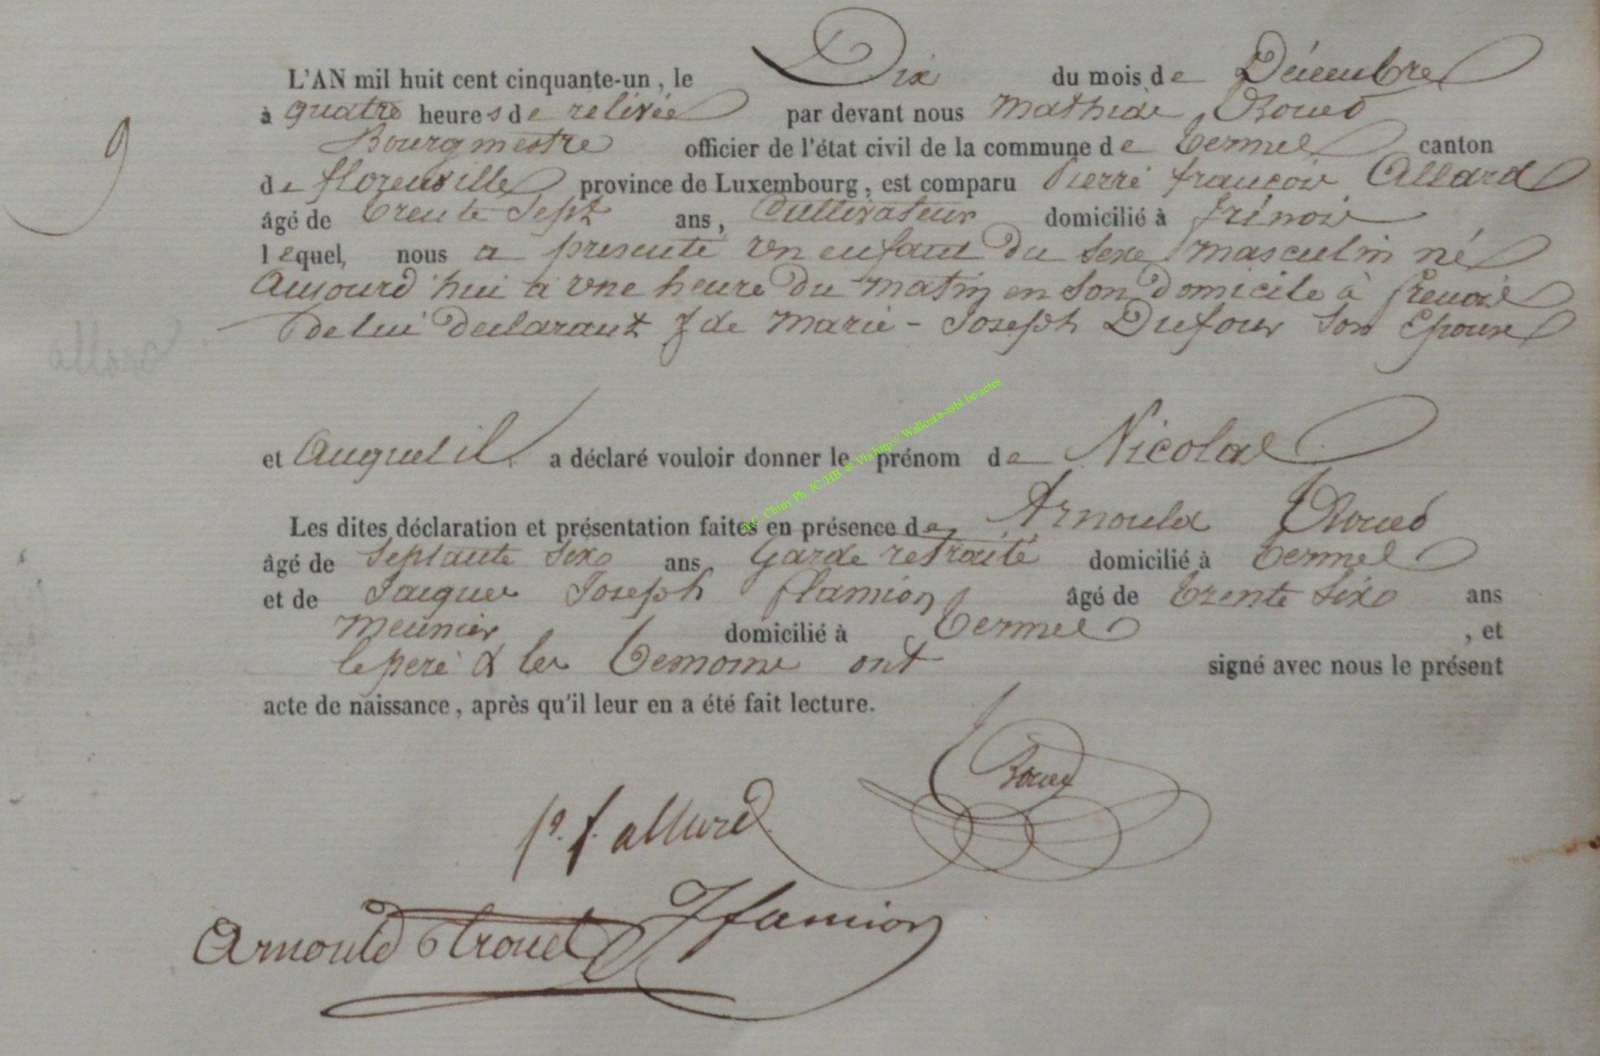 L'AN mil huit cent cinquante-un, le Dix du mois de Décembre
à quatre heures de relivée par devant nous Mathieu
9
Bourgmestre officier de l'état civil de la commune de termes canton
de florenville province de Luxembourg, est comparu Pierre françois Allard
âgé de trente Sept ans, Cultivateur domicilié à frénois
lequel, nous a présenté un enfant du Sexe masculin né
Aujourd'hui à une heure du matin en son domicile à frenois
de lui déclarant & de Marie-Joseph Dufour Son Epouse
et Auquel il a déclaré vouloir donner le prénom de Nicolas
Les dites déclaration et présentation faites en présence de Arnould
âgé de Septante Six ans Garde retraité domicilié à termes
et de Jacques Joseph flamion âgé de trente Six ans
meunier domicilié à termes, et
le pere & les temoins ont signé avec nous le présent
acte de naissance, après qu'il leur en a été fait lecture.
p. f. allard
Arnould
Jflamion